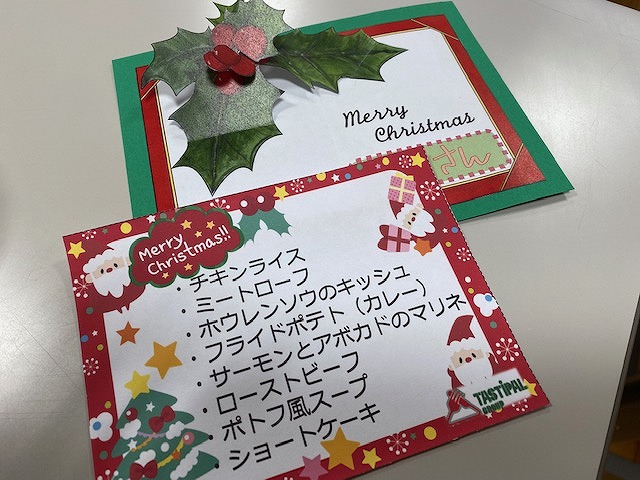 Merry
Christmas
さん
Merry
Christmas!!
・チキンライス
・ミートローフ
・ホウレンソウのキッシュ
・フライドポテト（カレー）
・サーモンとアボカドのマリネ
・ローストビーフ
・ポトフ風スープ
・ショートケーキ
TASTIPAL
GROUP